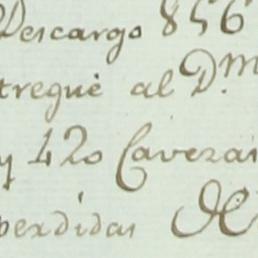 Descargo 856
tregué al D.n
y 420 Cavezas
perdidas De